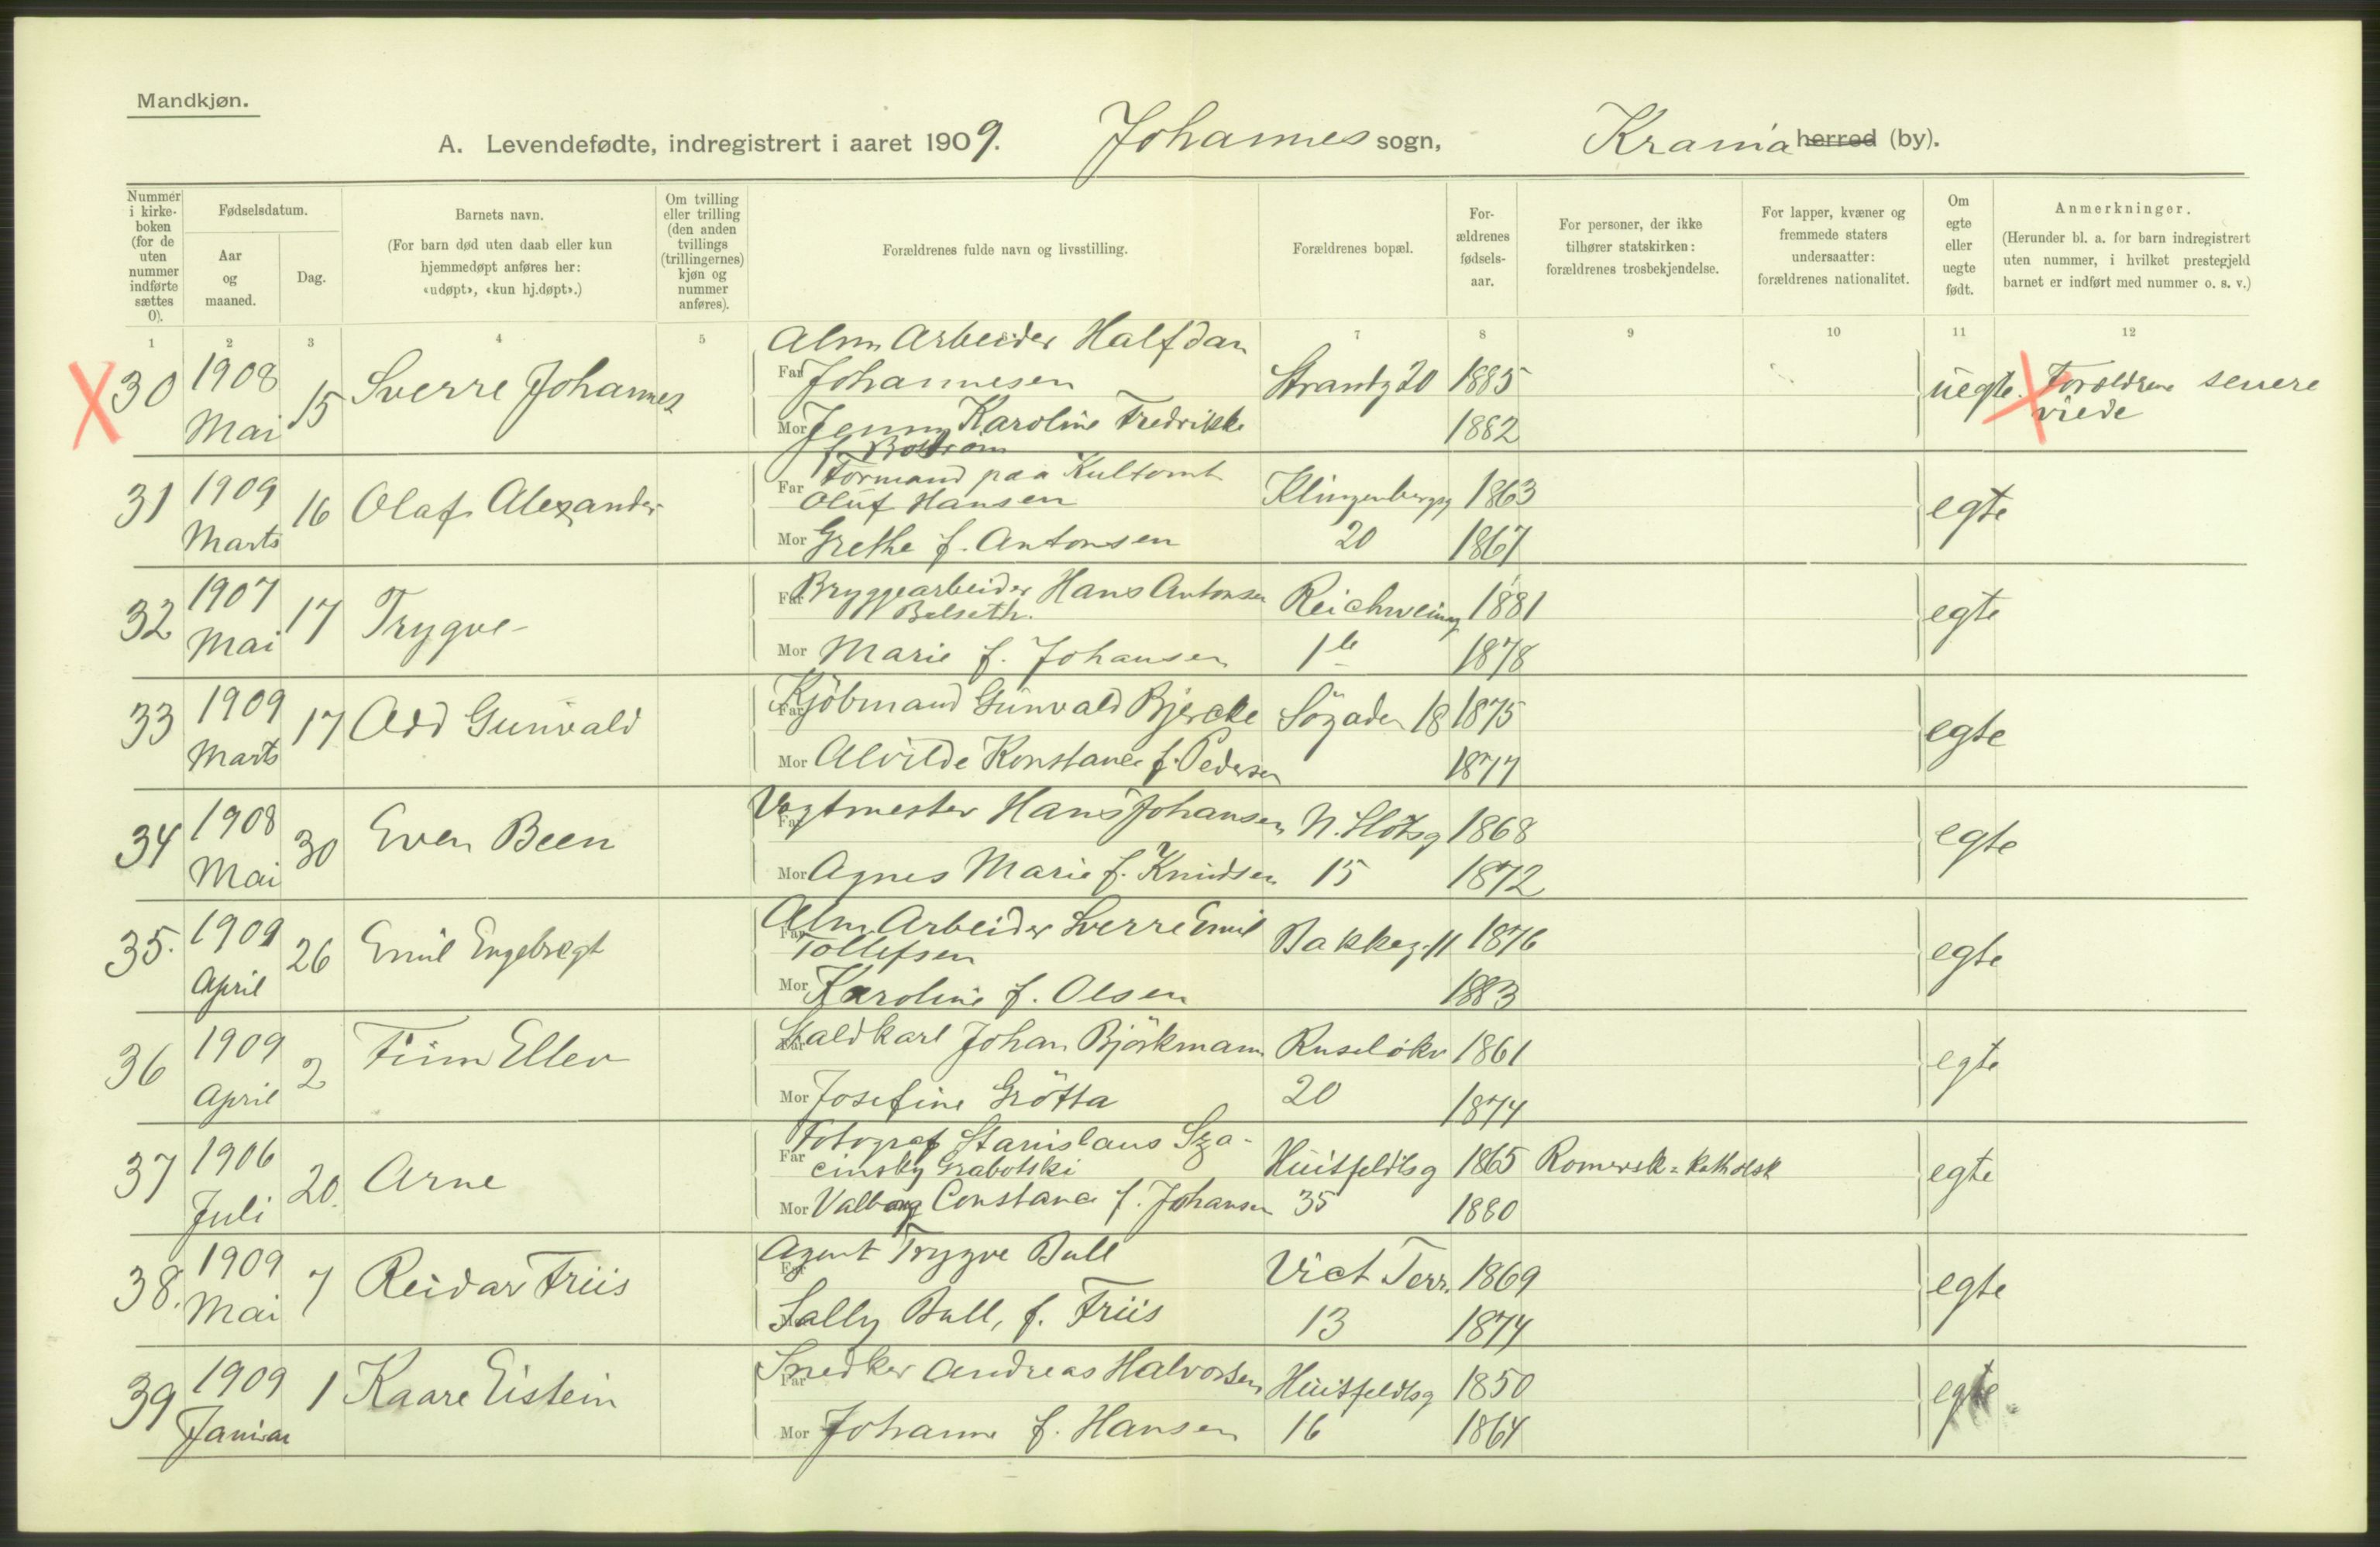 Mandkjøn.
A. Levendefødte, indregistrert i aaret 1909. Johannes sogn, Krania herred (by).
Nummer i kirke-boken (for de uten nummer indførte sættes 0).
Fødselsdatum.
Aar og maaned.
Dag.
Barnets navn.
(For barn død uten daab eller kun hjemmedøpt anføres her: «udøpt», «kun hj.døpt».)
Om tvilling eller trilling (den anden tvillings (trillingernes) kjøn og nummer anføres).
Forældrenes fulde navn og livsstilling.
Forældrenes bopæl.
For-ældrenes fødsels-aar.
For personer, der ikke tilhører statskirken: forældrenes trosbekjendelse.
For lapper, kvæner og fremmede staters undersaatter: forældrenes nationalitet.
Om egte eller uegte født.
Anmerkninger.
(Herunder bl. a. for barn indregistrert uten nummer, i hvilket prestegjeld barnet er indført med nummer o. s. v.)
1 2 3 4 5 7 8 9 10 11 12
X 30 1908 Mai 15 Sverre Johannes
Alm Arbeider Halfdan
Far Johannesen Strandg 20 1885 uegte. X Foreldrene senere viede
Mor Jenny Karoline Fredrikke 1882
f. Bostrøm
31 1909 Marts 16 Olaf Alexander
Far Formand paa Kultomt
Oluf Hansen Klingenbergg 1863 egte
Mor Grethe f. Antonsen 20 1867
32 1907 Mai 17 Trygve
Far Bryggearbeider Hans Antonsen Reichweing 1881 egte
Belseth.
Mor Marie f. Johansen 1 1878
33 1909 Marts 17 Odd Gunvald
Far Kjöbmand Gunvald Bjercke Sögaden 18 1875 egte
Mor Alvilde Konstance f. Pedersen 1877
34 1908 Mai 30 Even Been
Far Vagtmester Hans Johansen N. Slotsg 1868 egte
Mor Agnes Marie f. Knudsen 15 1872
35. 1909 April 26 Emil Engebregt
Far Alm Arbeider Sverre Emil Bakkeg. 11 1876 egte
Tollefsen
Mor Karoline f. Olsen 1883
36 1909 April 2 Finn Ellev
Far Staldkarl Johan Björkmann Ruselökv 1861 egte
Mor Josefine Grötta 20 1874
37 1906 Juli 20. Arne
Far Fotograf Stanislaus Sza-
cinsky Grabotski Huitfeldtsg 1865 Romersk-katholsk egte
Mor Valborg Constance f. Johansen 35 1880
38. 1909 Mai 7 Reidar Friis
Far Agent Trygve Bull Vict Terr. 1869 egte
Mor Sally Bull, f. Friis 13 1874
39 1909 Januar 1 Kaare Eistein
Far Snedker Andreas Halvorsen Huitfeldtsg 1850 egte
Mor Johanne f. Hansen 16 1864